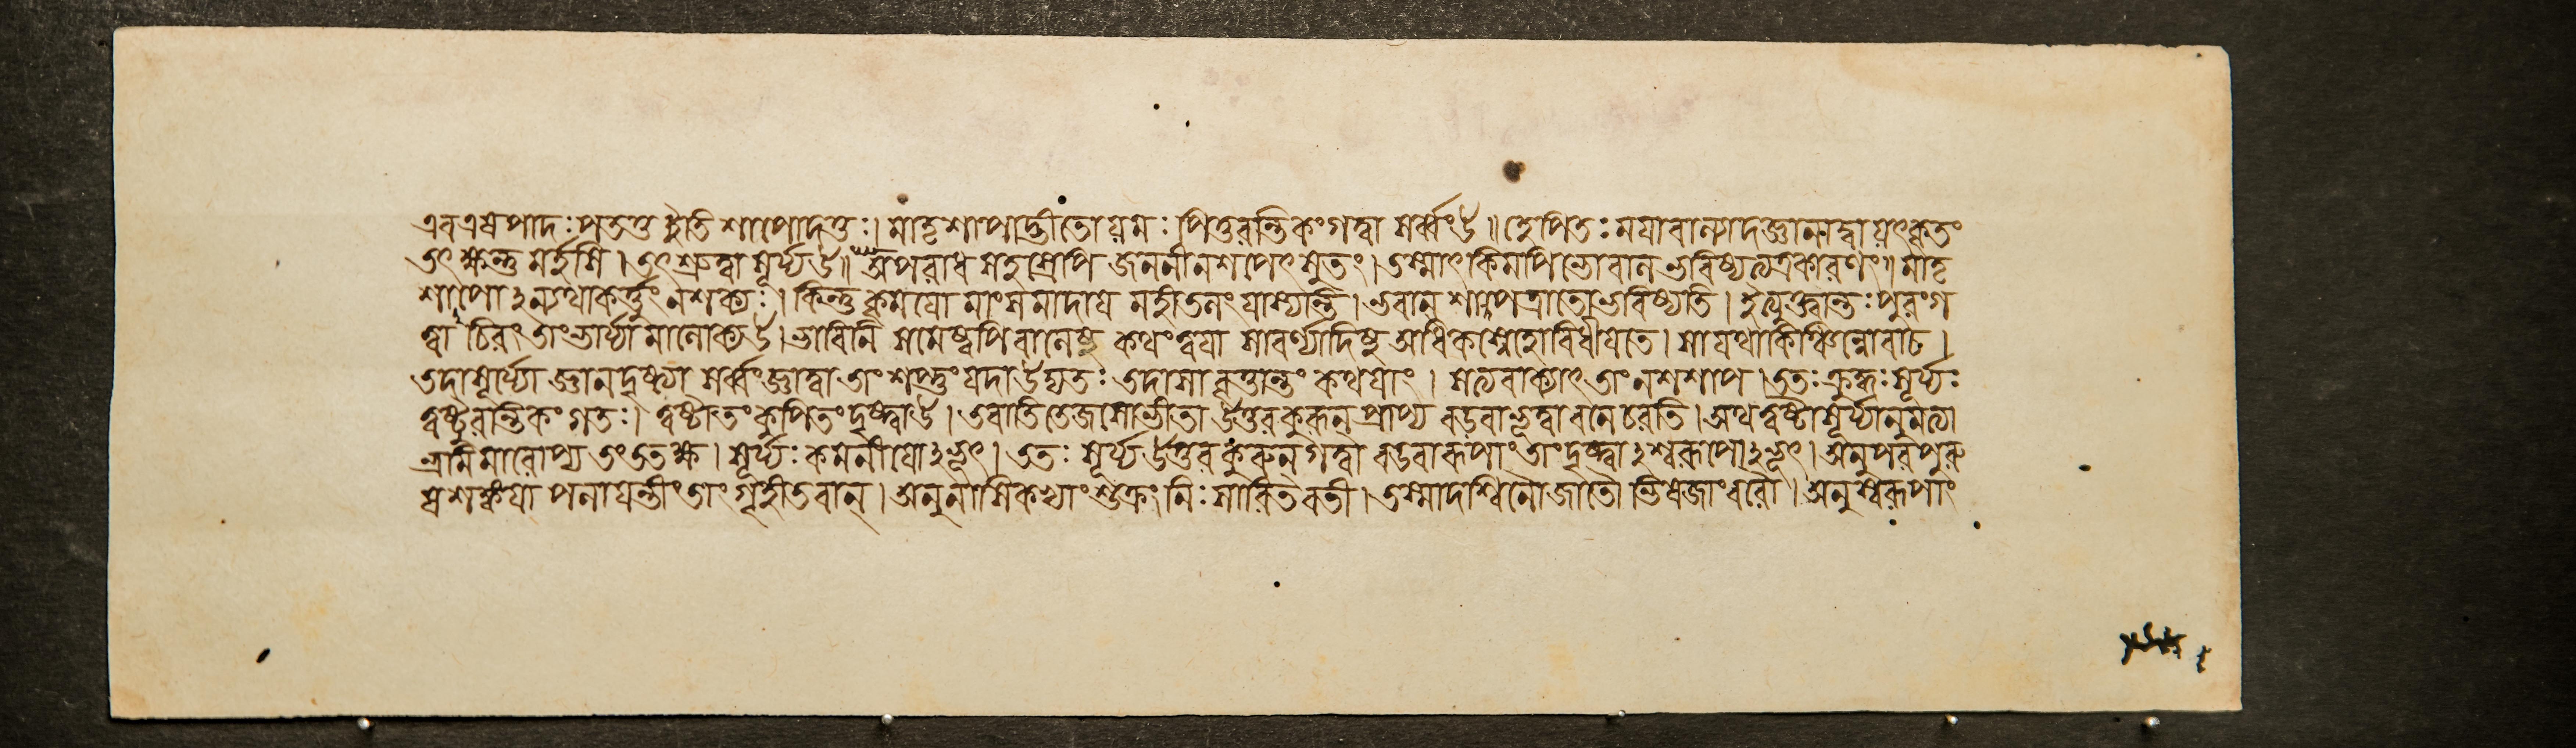 এব এষ পাদঃ পততু ইতি শাপো দত্তঃ। মাতৃশাপাদ্ভীতো যমঃ পিতুরন্তিকং গত্বা সর্ব্বং উ॥ হে পিতঃ ময়া বাল্যাদজ্ঞানাদ্বা যৎকৃতং
তৎ ক্ষন্তুমর্হসি। তৎ শ্রুত্বা সূর্য্য উ॥ অপরাধসহস্রেপি জননী ন শপেৎ সুতং। তস্মাৎ কিমপি ভো বাল ভবিষ্যত্যত্র কারণং॥ মাতৃ
শাপোঽন্যথা কর্ত্তুং ন শক্যঃ। কিন্তু কৃময়ো মাংসমাদায় মহীতলং যাস্যন্তি। ভবান্ শাপত্রাতো ভবিষ্যতি। ইত্যুক্ত্বান্তঃপুরং গ
ত্বা চিরং তাং ভার্য্যামালোক্য উ। ভাবিনি সমেষ্বপি বালেষু কথং ত্বয়া সাবর্ণ্যাদিষু অধিকস্নেহো বিধীয়তে। সা যথা কিঞ্চিন্নোবাচ।
তদা সূর্য্যো জ্ঞানদৃষ্ট্যা সর্ব্বং জ্ঞাত্বা তাং শপ্তুং যদা উদ্যতঃ তদা সা বৃত্তান্তং কথয়াং। সত্যবাক্যাৎ তাং ন শশাপ। ততঃ ক্রুদ্ধঃ সূর্য্যঃ
ত্বষ্টুরন্তিকং গতঃ। ত্বষ্টা তং কুপিতং দৃষ্ট্বা উ। তবাতিতেজসো ভীতা উত্তরকুরূন্ প্রাপ্য বড়বা ভূত্বা বনে চরতি। অথ ত্বষ্টা সূর্য্যানুমত্যা
ভ্রমিমারোপ্য তং ততক্ষ। সূর্য্যঃ কমনীয়োঽভূৎ। ততঃ সূর্য্য উত্তরকুরূন্ গত্বা বড়বারূপাং তাং দৃষ্ট্বাঽশ্বরূপোঽভূৎ। অনু পরপুরু
ষশঙ্কয়া পলায়ন্তীং তাং গৃহীতবান্। অনু নাসিকাভ্যাং শুক্রং নিঃসারিতবতী। তস্মাদশ্বিনৌ জাতৌ ভিষজাং বরৌ। অনু স্বরূপাং